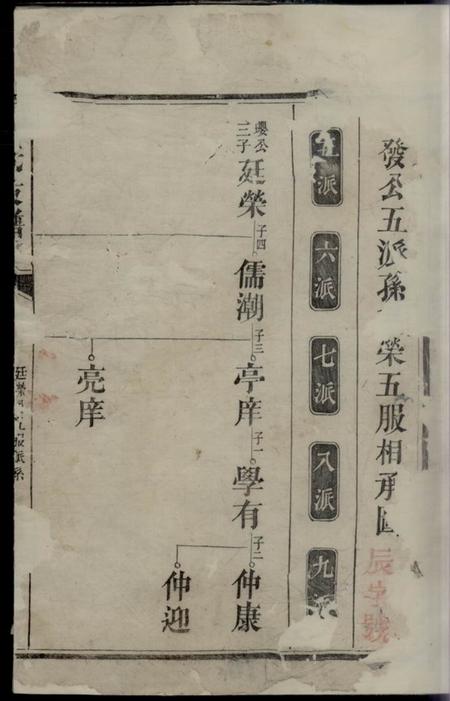 發公五派孫 榮五服相承圖
辰字號
五派 六派 七派 八派 九派
瓔公三子 廷榮 子四 儒潮 子三 亭庠 子一 學有 子二 仲康
仲迎
亮庠
廷榮
派系